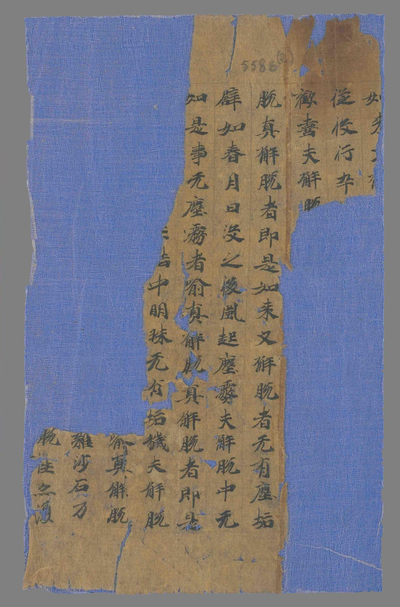 5586
如
從後行
歡喜夫解脫
脫真解脫者即是如来又解脫者无有塵垢
辟如春月日没之後風起塵霧夫解脫中无
如是事无塵霧者喻真解脫真解脫者即是
中明珠无有垢穢夫解脫
喻真解脫
雜沙石乃
脫性亦復